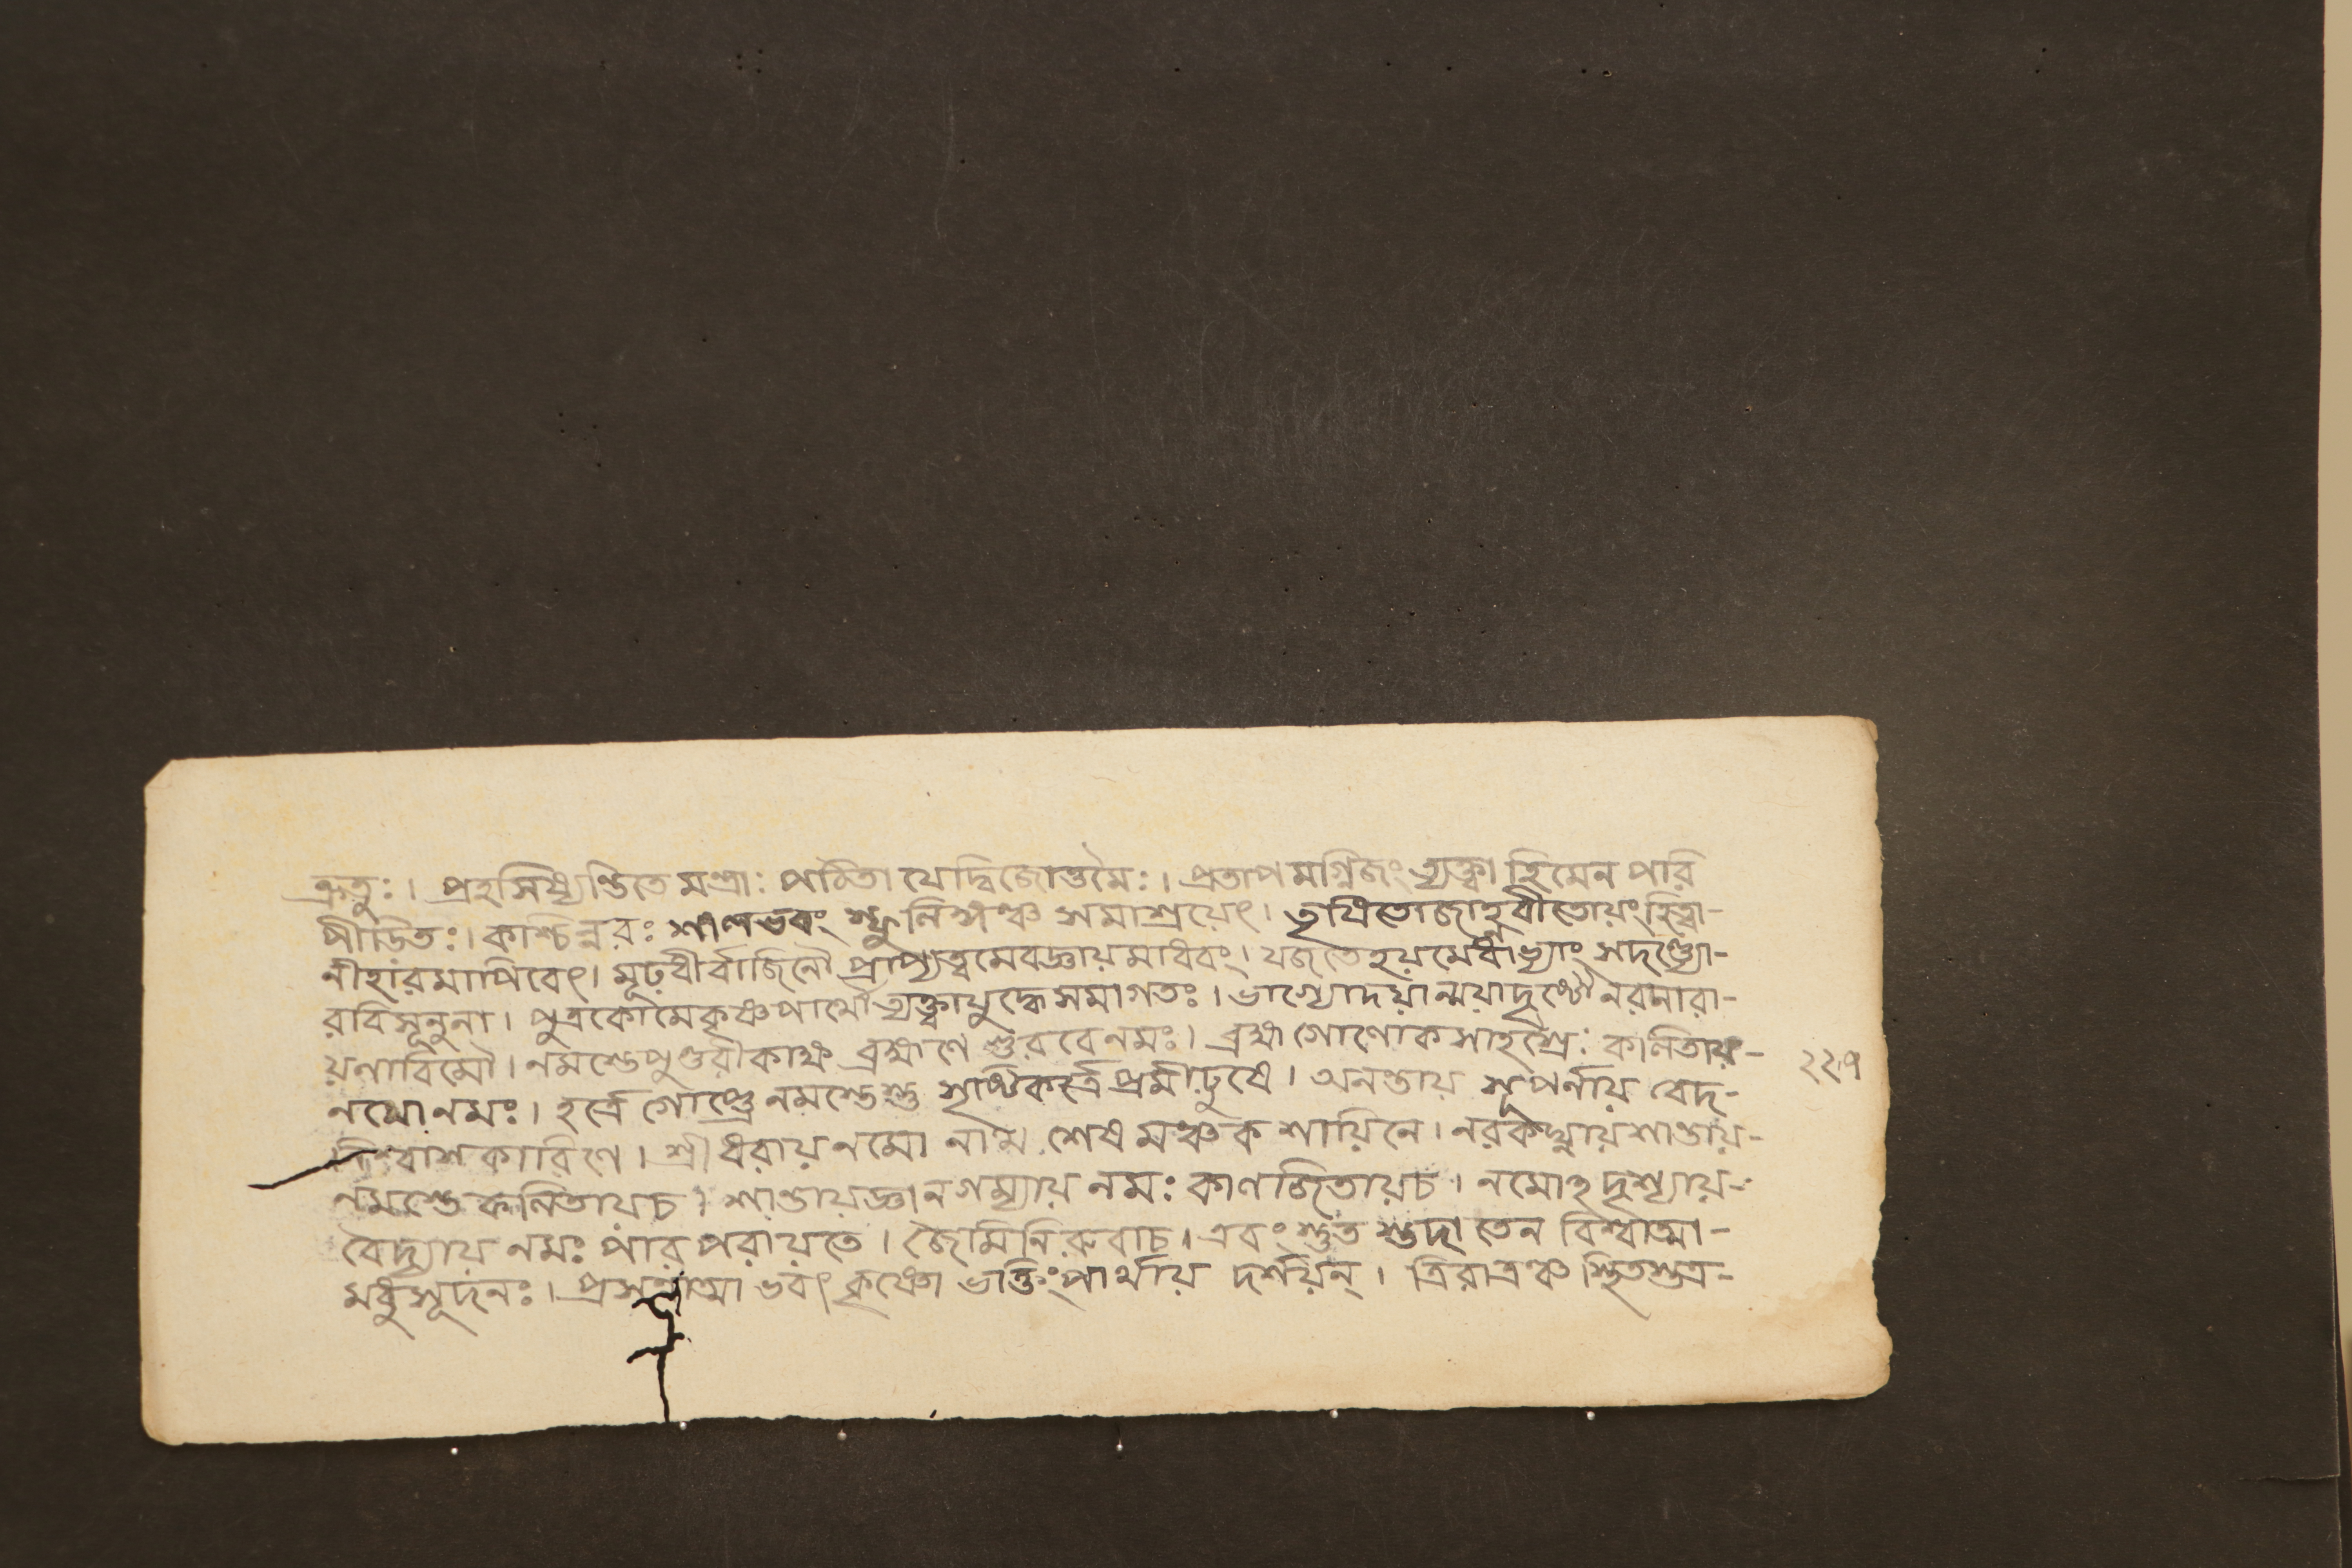 ক্রতুঃ। প্রহসিষ্যন্তিতে মন্ত্রাঃ পঠিতা যেদ্বিজোত্তমৈঃ। প্রতাপমগ্নিজং ত্যক্ত্বা হিমেন পরি
পীডিতঃ। কাশ্চিন্নরঃ শলভবং স্ফুলিঙ্গঞ্চ সমাশ্রয়েৎ। তৃষিতোজাহ্নবীতোয়ংহিত্বা-
নীহারমাপিবেৎ। মূঢ়ধীর্বাজিনৌ প্রাপ্যত্বমেবজ্ঞায়মাধবং। যজতেহয়মেধাভ্যাং সদণ্ড্যো-
রবিসূনুনা। পুত্রকৌমেকৃষ্ণপার্থৌত্যক্ত্বাযুদ্ধেসমাগতঃ। ভাগ্যোদয়ান্ময়াদৃষ্টৌ নরনারা-
য়ণাবিমৌ। নমস্তেপুণ্ডরীকাক্ষ ব্রহ্মণে গুরবেনমঃ। ব্রহ্মগোলোকসাহস্রৈঃ কলিতায়- ২২৭
নমোনমঃ। হর্ত্রে গোপ্ত্রেনমস্তেস্তু সৃষ্টিকর্ত্রেপ্রমীঢুষে। অনন্তায় সুপর্নায় বেদ-
নিশ্বাশকারিণে। শ্রীধরায়নমো নাম শেষমঞ্চকশায়িনে। নরকঘ্নায়শান্তায়-
নমস্তে কলিতায়চ। শান্তায়জ্ঞানগম্যায়নমঃ কালজিতায়চ। নমোহদৃশ্যায়-
বৈদ্যায় নমঃ পারপরায়তে। জৈমিনিরুবাচ। এবং স্তুত স্তদা তেন বিশ্বাত্মা-
মধুসূদনঃ। প্রসন্নাত্মা ভবৎকৃষ্ণো ভক্তিংপার্থায় দর্শয়ন্। ত্রিরাত্রঞ্চ স্থিতস্তত্র-